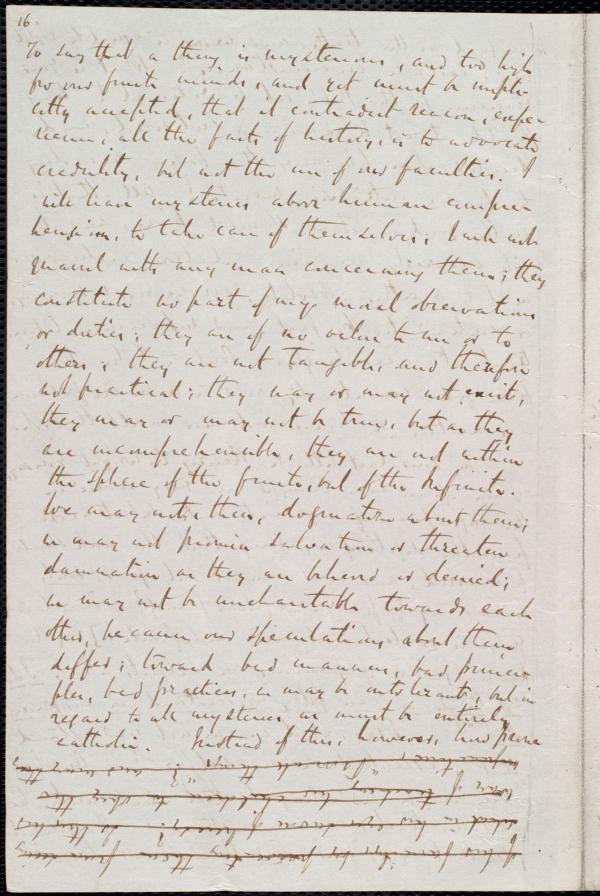 16
To say that a thing is mysterious, and too high
for our finite minds, and yet must be impli-
citly accepted, that it contradict reason, expe-
rience, all the facts of history, is to advocate
credulity, but not the use of our faculties. I
will leave mysteries above human compre-
hension, to take care of themselves; I will not
quarrel with any man concerning them; they
constitute no part of my moral observations
or duties; they are of no value to me or to
others; they are not tangible, and therefore
not practical; they may or may not exist,
they may or may not be true, but as they
are incomprehensible, they are not within
the sphere of the finite, but of the Infinite.
We may not then, dogmatize about them;
we may not promise salvation or threaten
damnation as they are believed or denied;
we may not be uncharitable towards each
other, because our speculations about them
differ; toward bad manners, bad princi-
ples, bad practices, we may be intolerant, but in
regard to all mysteries we must be entirely
catholic. Instead of this, however, how
of teaching his children to obey the